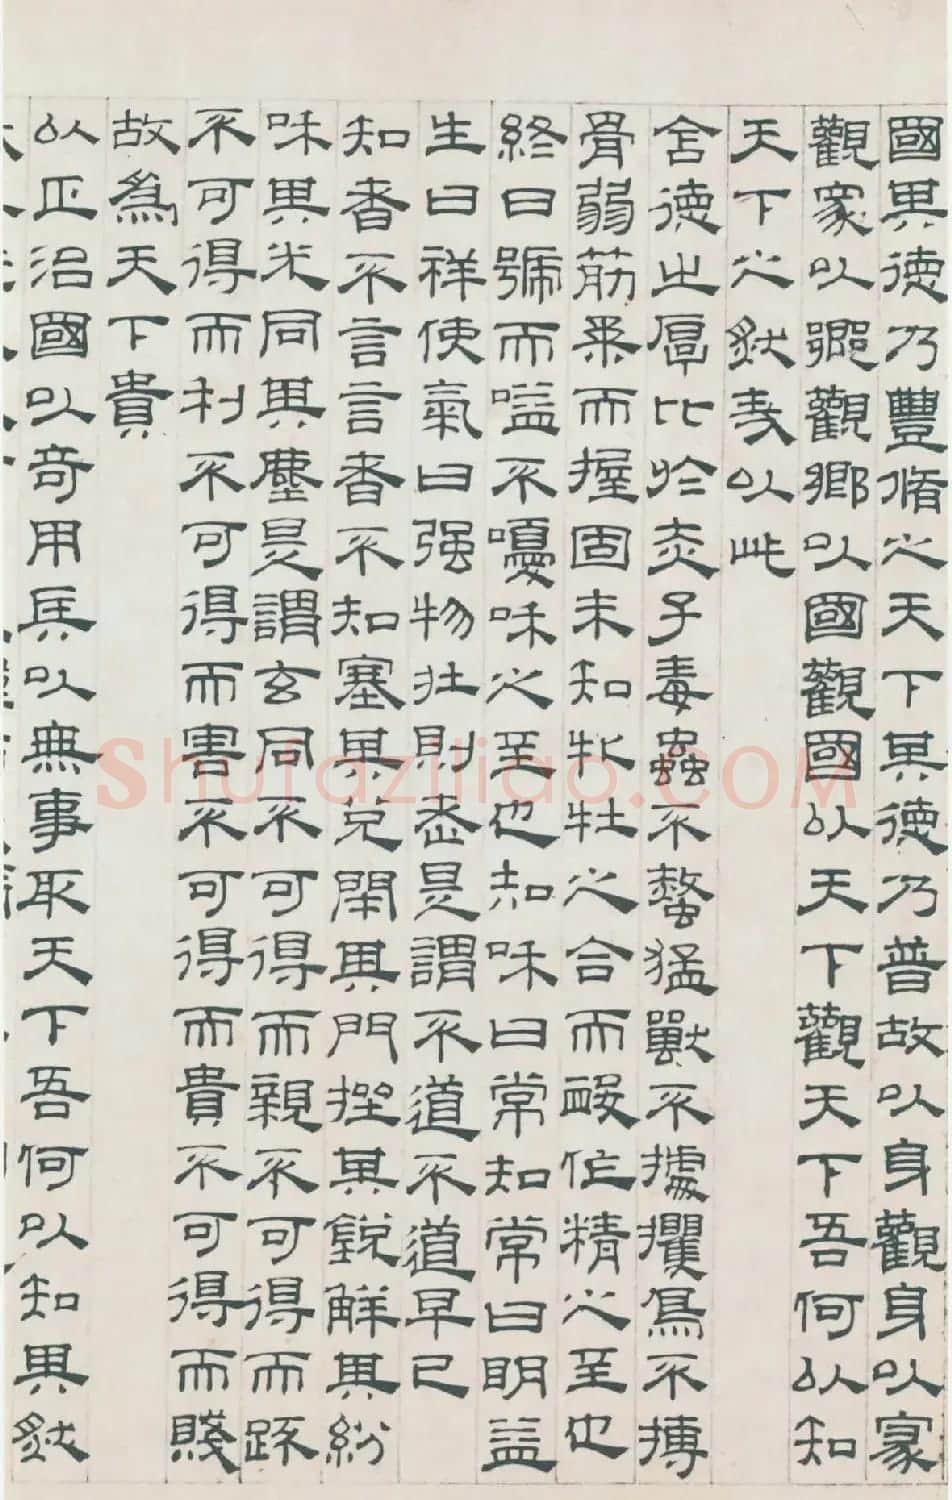 國其德乃豐脩之天下其德乃普故以身觀身以家
觀家以鄉觀鄉以國觀國以天下觀天下吾何以知
天下之然哉以此
含德之厚比於赤子毒蟲不螫猛獸不據攫鳥不搏
骨弱筋柔而握固未知牝牡之合而䘒作精之至也
終日號而嗌不嚘和之至也知和曰常知常曰明益
生曰祥使氣曰强物壯則老是謂不道不道早已
知者不言言者不知塞其兌閉其門挫其銳解其紛
和其光同其塵是謂玄同不可得而親不可得而踈
不可得而利不可得而害不可得而貴不可得而賤
故爲天下貴
以正治國以奇用兵以無事取天下吾何以知其然
shufaziliao.COM